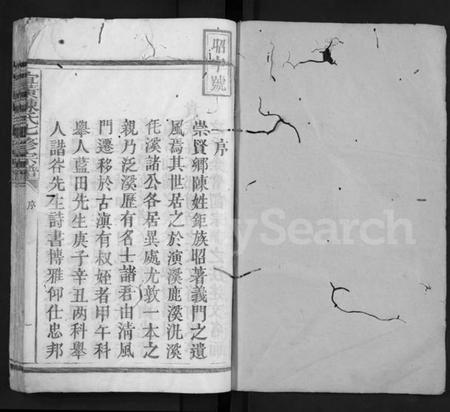 昭字號
序
崇賢鄉陳姓年族昭著義門之遺
風焉其世居之於演溪鹿溪沉溪
仛溪諸公各居異處尤敦一本之
親乃泛溪歷有名士諸君由清風
門遷移於古滇有叔姪者甲午科
舉人藍田先生庚子辛丑兩科舉
人諧谷先生詩書博雅仰仕忠邦
陳氏七修宗譜
序
一
MySearch